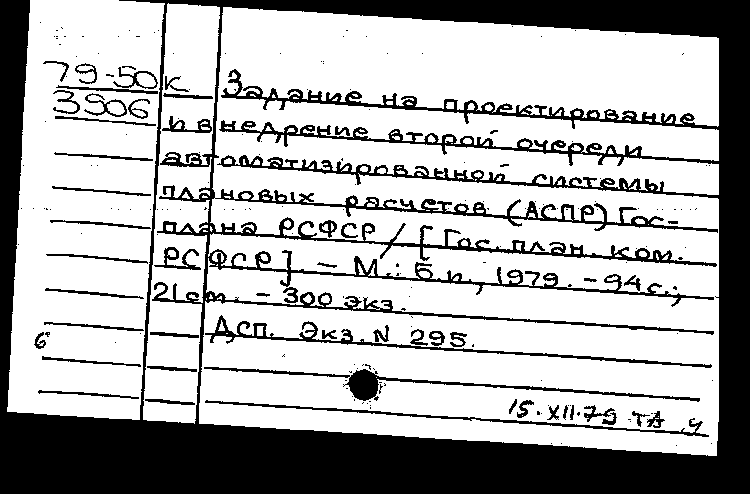 79-50к
3906
Задание на проектирование
и внедрение второй очереди
автоматизированной системы
плановых расчетов (АСПР) Гос-
плана РСФСР / [Гос. план. ком.
РСФСР]. - М.: Б.и., 1979. - 94 с.;
21 см. - 300 экз.
Дсп. Экз. N 295.
6
15.XII.79 ТА